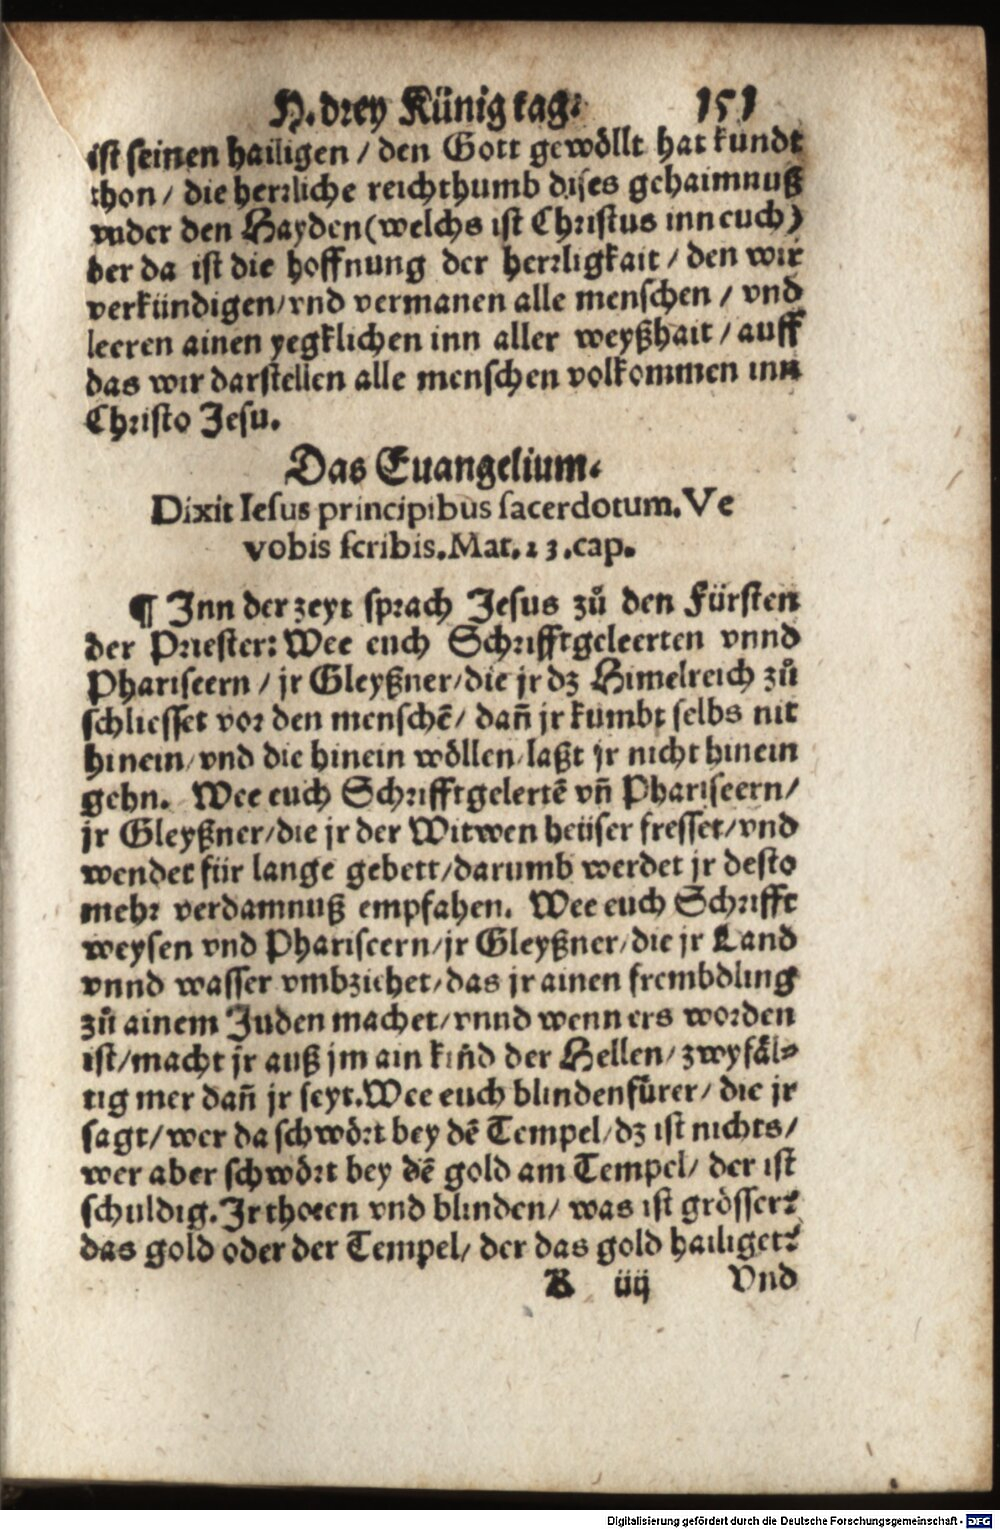 H. drey Künig tag. 151
ist seinen hailigen / den Gott gewöllt hat kundt
thon / die herrliche reichthumb dises gehaimnuß
vnder den Hayden (welchs ist Christus inn euch)
der da ist die hoffnung der herrligkait / den wir
verkündigen / vnd vermanen alle menschen / vnd
leeren ainen yegklichen inn aller weyßhait / auff
das wir darstellen alle menschen volkommen inn
Christo Jesu.
Das Euangelium.
Dixit Iesus principibus sacerdotum. Ve
vobis scribis. Mat. 23. cap.
¶ Inn der zeyt sprach Jesus zů den Fürsten
der Priester: Wee euch Schrifftgeleerten vnnd
Phariseern / jr Gleyßner / die jr dz Himelreich zů
schliesset vor den menschē / dañ jr kumbt selbs nit
hinein / vnd die hinein wöllen / laßt jr nicht hinein
gehn. Wee euch Schrifftgelertē vñ Phariseern /
jr Gleyßner / die jr der Witwen heüser fresset / vnd
wendet für lange gebett / darumb werdet jr desto
mehr verdamnuß empfahen. Wee euch Schrifft
weysen vnd Phariseern / jr Gleyßner / die jr Land
vnnd wasser vmbziehet / das jr ainen frembdling
zů ainem Juden machet / vnnd wenn ers worden
ist / macht jr auß jm ain kiñd der Hellen / zwyfäl-
tig mer dañ jr seyt. Wee euch blindenfürer / die jr
sagt / wer da schwört bey dē Tempel / dz ist nichts /
wer aber schwört bey dē gold am Tempel / der ist
schuldig. Jr thoren vnd blinden / was ist grösser?
das gold oder der Tempel / der das gold hailiget?
iiij Vnd
Digitalisierung gefördert durch die Deutsche Forschungsgemeinschaft - DFG